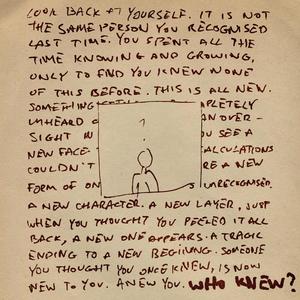 LOOK BACK AT YOURSELF. IT IS NOT
THE SAME PERSON YOU RECOGNISED
LAST TIME. YOU SPENT ALL THE
TIME KNOWING AND GROWING,
ONLY TO FIND YOU KNEW NONE
OF THIS BEFORE. THIS IS ALL NEW.
SOMETHING PLETELY
UNHEARD AN OVER-
SIGHT IN YOU SEE A
NEW FACE CALCULATIONS
COULDN'T RE A NEW
FORM OF ON UNRECOGNISED.
A NEW CHARACTER. A NEW LAYER, JUST
WHEN YOU THOUGHT YOU PEELED IT ALL
BACK, A NEW ONE APPEARS. A TRAGIC
ENDING TO A NEW BEGINNG. SOMEONE
YOU THOUGHT YOU ONCE KNEW, IS NOW
NEW TO YOU. A NEW YOU. WHO KNEW?
?